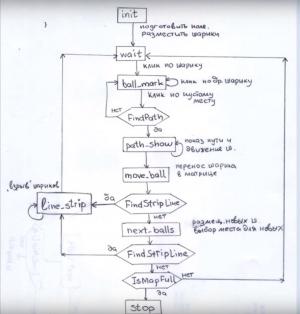 init
подготовить поле.
разместить шарики
wait
клик по шарику
ball_mark
клик по др. шарику
клик по пустому
месту
нет
FindPath
да
path_show
показ пути и
движение ш.
перенос шарика
в матрице
move_ball
"взрыв" шариков
line_strip
да
FindStripLine
нет
next_balls
размещ. новых ш.
выбор места для новых
FindStripLine
да
нет
IsMapFull
нет
да
stop